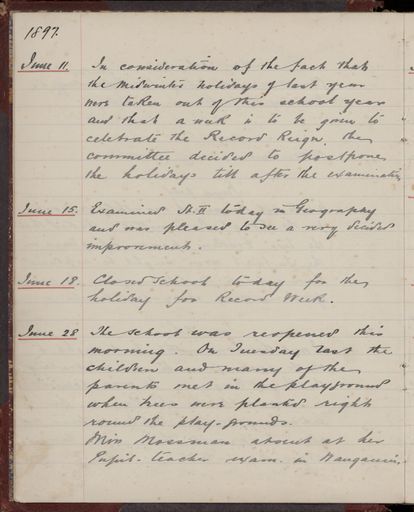 1897.
June 11. In consideration of the fact that
the midwinter holidays of last year
were taken out of this school year
and that a week is to be given to
celebrate the Record Reign, the
committee decided to postpone
the holidays till after the examination
June 15. Examined St. II today in Geography
and was pleased to see a very decided
improvement.
June 18. Closed School today for the
holiday for Record Week.
June 28 The school was reopened this
morning. On Tuesday last the
children and many of the
parents met in the playground
when trees were planted right
round the play-grounds.
Miss Mossman absent at her
Pupil-teacher exam. in Wanganui.